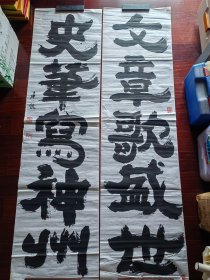 文章歌盛世
史筆寫神州